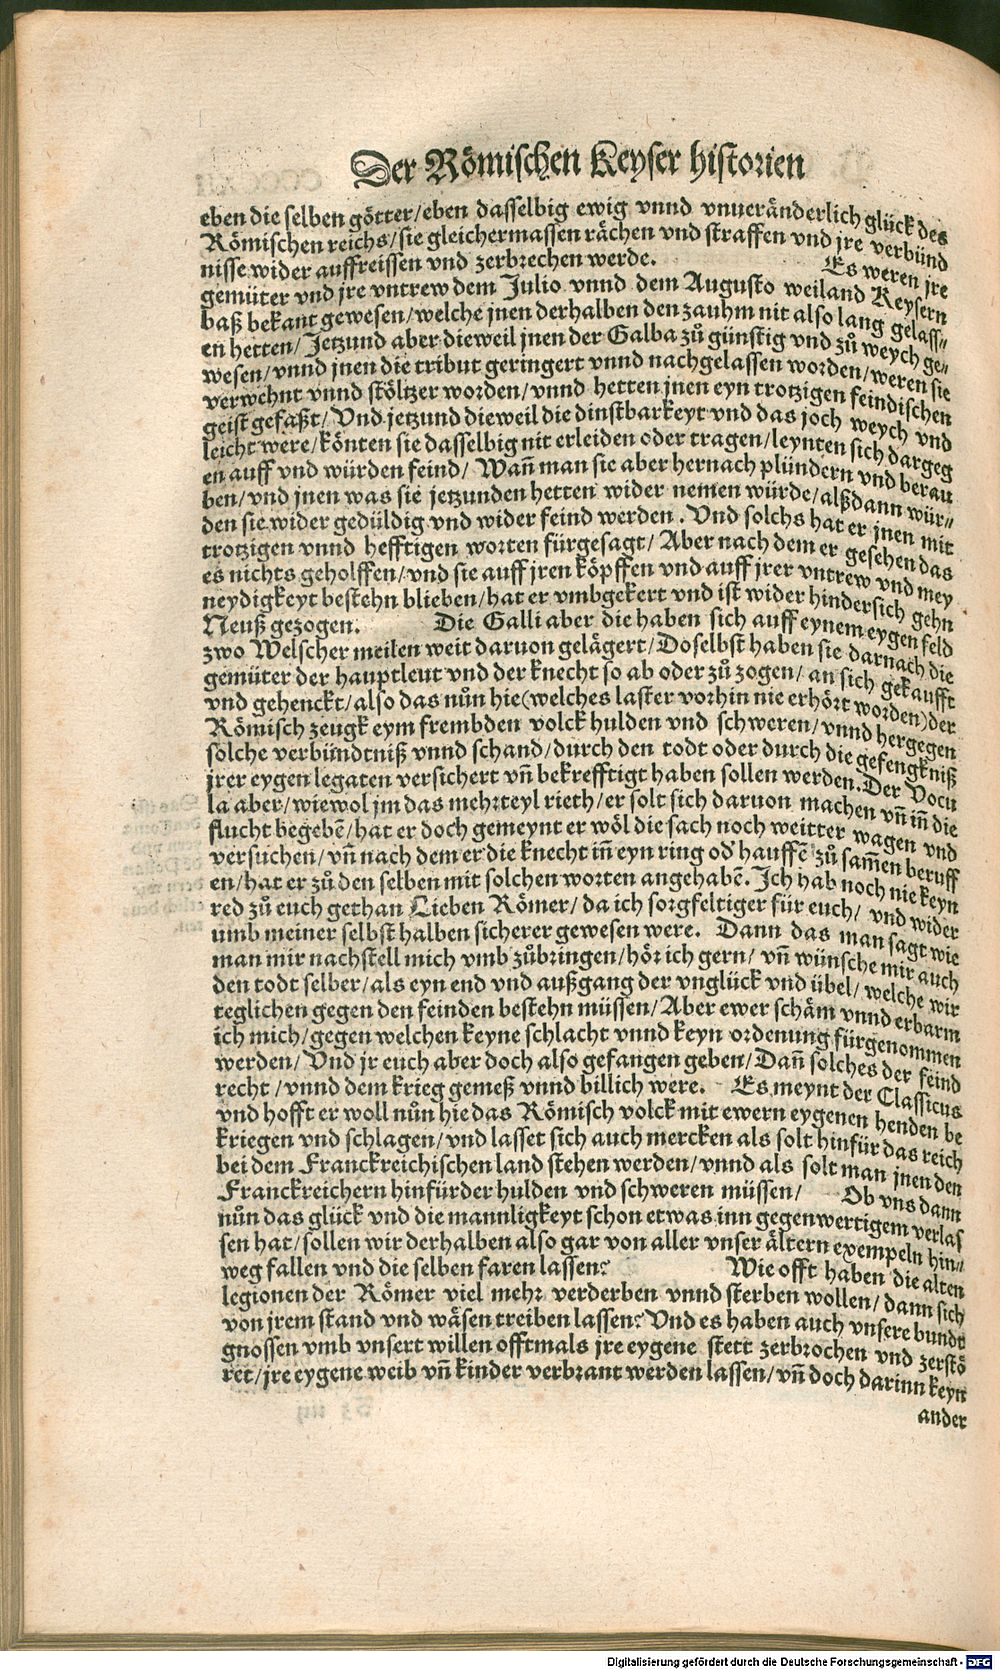 Der Römischen Keyser historien
eben die selben götter/eben dasselbig ewig vnnd vnueränderlich glück des
Römischen reichs/sie gleichermassen rächen vnd straffen vnd jre verbünd
nisse wider auffreissen vnd zerbrechen werde. Es weren jre
gemüter vnd jre vntrew dem Julio vnnd dem Augusto weiland Keysern
baß bekant gewesen/welche jnen derhalben den zauhm nit also lang gelass⸗
en hetten/ Jetzund aber dieweil jnen der Galba zů günstig vnd zů weych ge⸗
wesen/vnnd jnen die tribut geringert vnnd nachgelassen worden/weren sie
verwehnt vnnd stöltzer worden/vnnd hetten jnen eyn trotzigen feindischen
geist gefaßt/Vnd jetzund dieweil die dinstbarkeyt vnd das joch weych vnd
leicht were/könten sie dasselbig nit erleiden oder tragen/leynten sich dargeg
en auff vnd würden feind/ Wañ man sie aber hernach plündern vnd berau
ben/vnd jnen was sie jetzunden hetten wider nemen würde/alßdann wür⸗
den sie wider gedüldig vnd wider feind werden. Vnd solchs hat er jnen mit
trotzigen vnnd hefftigen worten fürgesagt/ Aber nach dem er gesehen das
es nichts geholffen/vnd sie auff jren köpffen vnd auff jrer vntrew vnd mey
neydigkeyt bestehn blieben/hat er vmbgekert vnd ist wider hindersich gehn
Neuß gezogen. Die Galli aber die haben sich auff eynem eygen feld
zwo Welscher meilen weit daruon gelägert/Doselbst haben sie darnach die
gemüter der hauptleut vnd der knecht so ab oder zů zogen/ an sich gekaufft
vnd gehenckt/also das nůn hie(welches laster vorhin nie erhört worden)der
Römisch zeugk eym frembden volck hulden vnd schweren/vnnd hergegen
solche verbündtniß vnnd schand/durch den todt oder durch die gefengkniß
jrer eygen legaten versichert vñ bekrefftigt haben sollen werden. Der Vocu
la aber/wiewol jm das mehrteyl rieth/er solt sich daruon machen vñ iñ die
flucht begebē/hat er doch gemeynt er wöl die sach noch weitter wagen vnd
versuchen/vñ nach dem er die knecht iñ eyn ring od̓ hauffē zů sam̄en beruff
en/hat er zů den selben mit solchen worten angehabē. Ich hab noch nie keyn
red zů euch gethan Lieben Römer/da ich sorgfeltiger für euch/ vnd wider
umb meiner selbst halben sicherer gewesen were. Dann das man sagt wie
man mir nachstell mich vmb zůbringen/hör ich gern/ vñ wünsche mir auch
den todt selber/als eyn end vnd außgang der vnglück vnd übel/welche wir
teglichen gegen den feinden bestehn müssen/Aber ewer schäm vnnd erbarm
ich mich/gegen welchen keyne schlacht vnnd keyn ordenung fürgenommen
werden/ Vnd jr euch aber doch also gefangen geben/Dañ solches der feind
recht/vnnd dem krieg gemeß vnnd billich were. Es meynt der Classicus
vnd hofft er woll nůn hie das Römisch volck mit ewern eygenen henden be
kriegen vnd schlagen/vnd lasset sich auch mercken als solt hinfür das reich
bei dem Franckreichischen land stehen werden/vnnd als solt man jnen den
Franckreichern hinfürder hulden vnd schweren müssen/ Ob vns dann
nůn das glück vnd die mannligkeyt schon etwas inn gegenwertigem verlas
sen hat/sollen wir derhalben also gar von aller vnser ältern exempeln hin⸗
weg fallen vnd die selben faren lassen? Wie offt haben die alten
legionen der Römer viel mehr verderben vnnd sterben wollen/dann sich
von jrem stand vnd wäsen treiben lassen? Vnd es haben auch vnsere bundt
gnossen vmb vnsert willen offtmals jre eygene stett zerbrochen vnd zerstö
ret/jre eygene weib vñ kinder verbrant werden lassen/vñ doch darinn keyn
ander
Digitalisierung gefördert durch die Deutsche Forschungsgemeinschaft - DFG